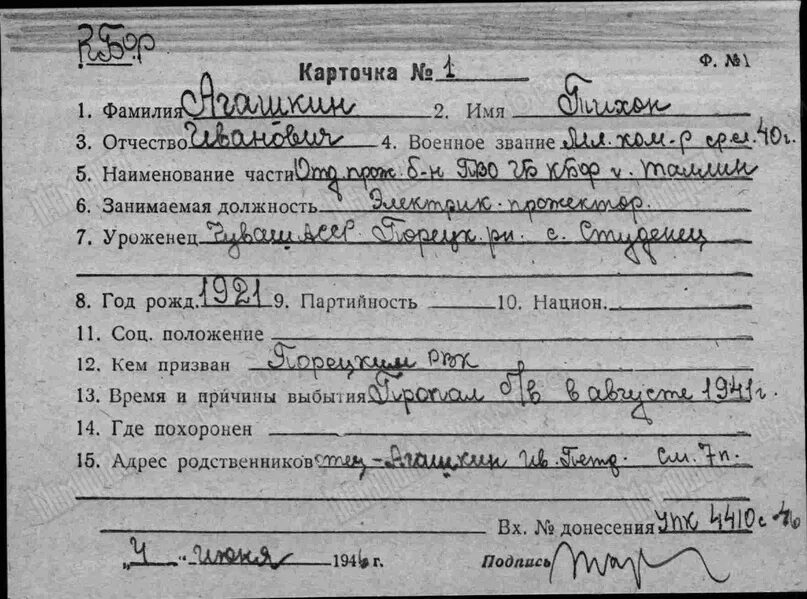 КБФ
Ф. №1
Карточка № 1
1. Фамилия Агашкин 2. Имя Тихон
3. Отчество Иванович 4. Военное звание Мл. ком-р ср.сл. 40г.
5. Наименование части Отд. прож. б-н ПВО ГБ КБФ г. Таллин
6. Занимаемая должность Электрик-прожектор.
7. Уроженец Чуваш АССР. Порецк. рн. с. Студенец
8. Год рожд. 1921 9. Партийность 10. Национ.
11. Соц. положение
12. Кем призван Порецким РВК
13. Время и причины выбытия Пропал б/в в августе 1941г.
14. Где похоронен
15. Адрес родственников отец-Агашкин Ив. Петр. См. 7п.
Вх. № донесения УПК 4410с-46
"4" июня 1946 г. Подпись